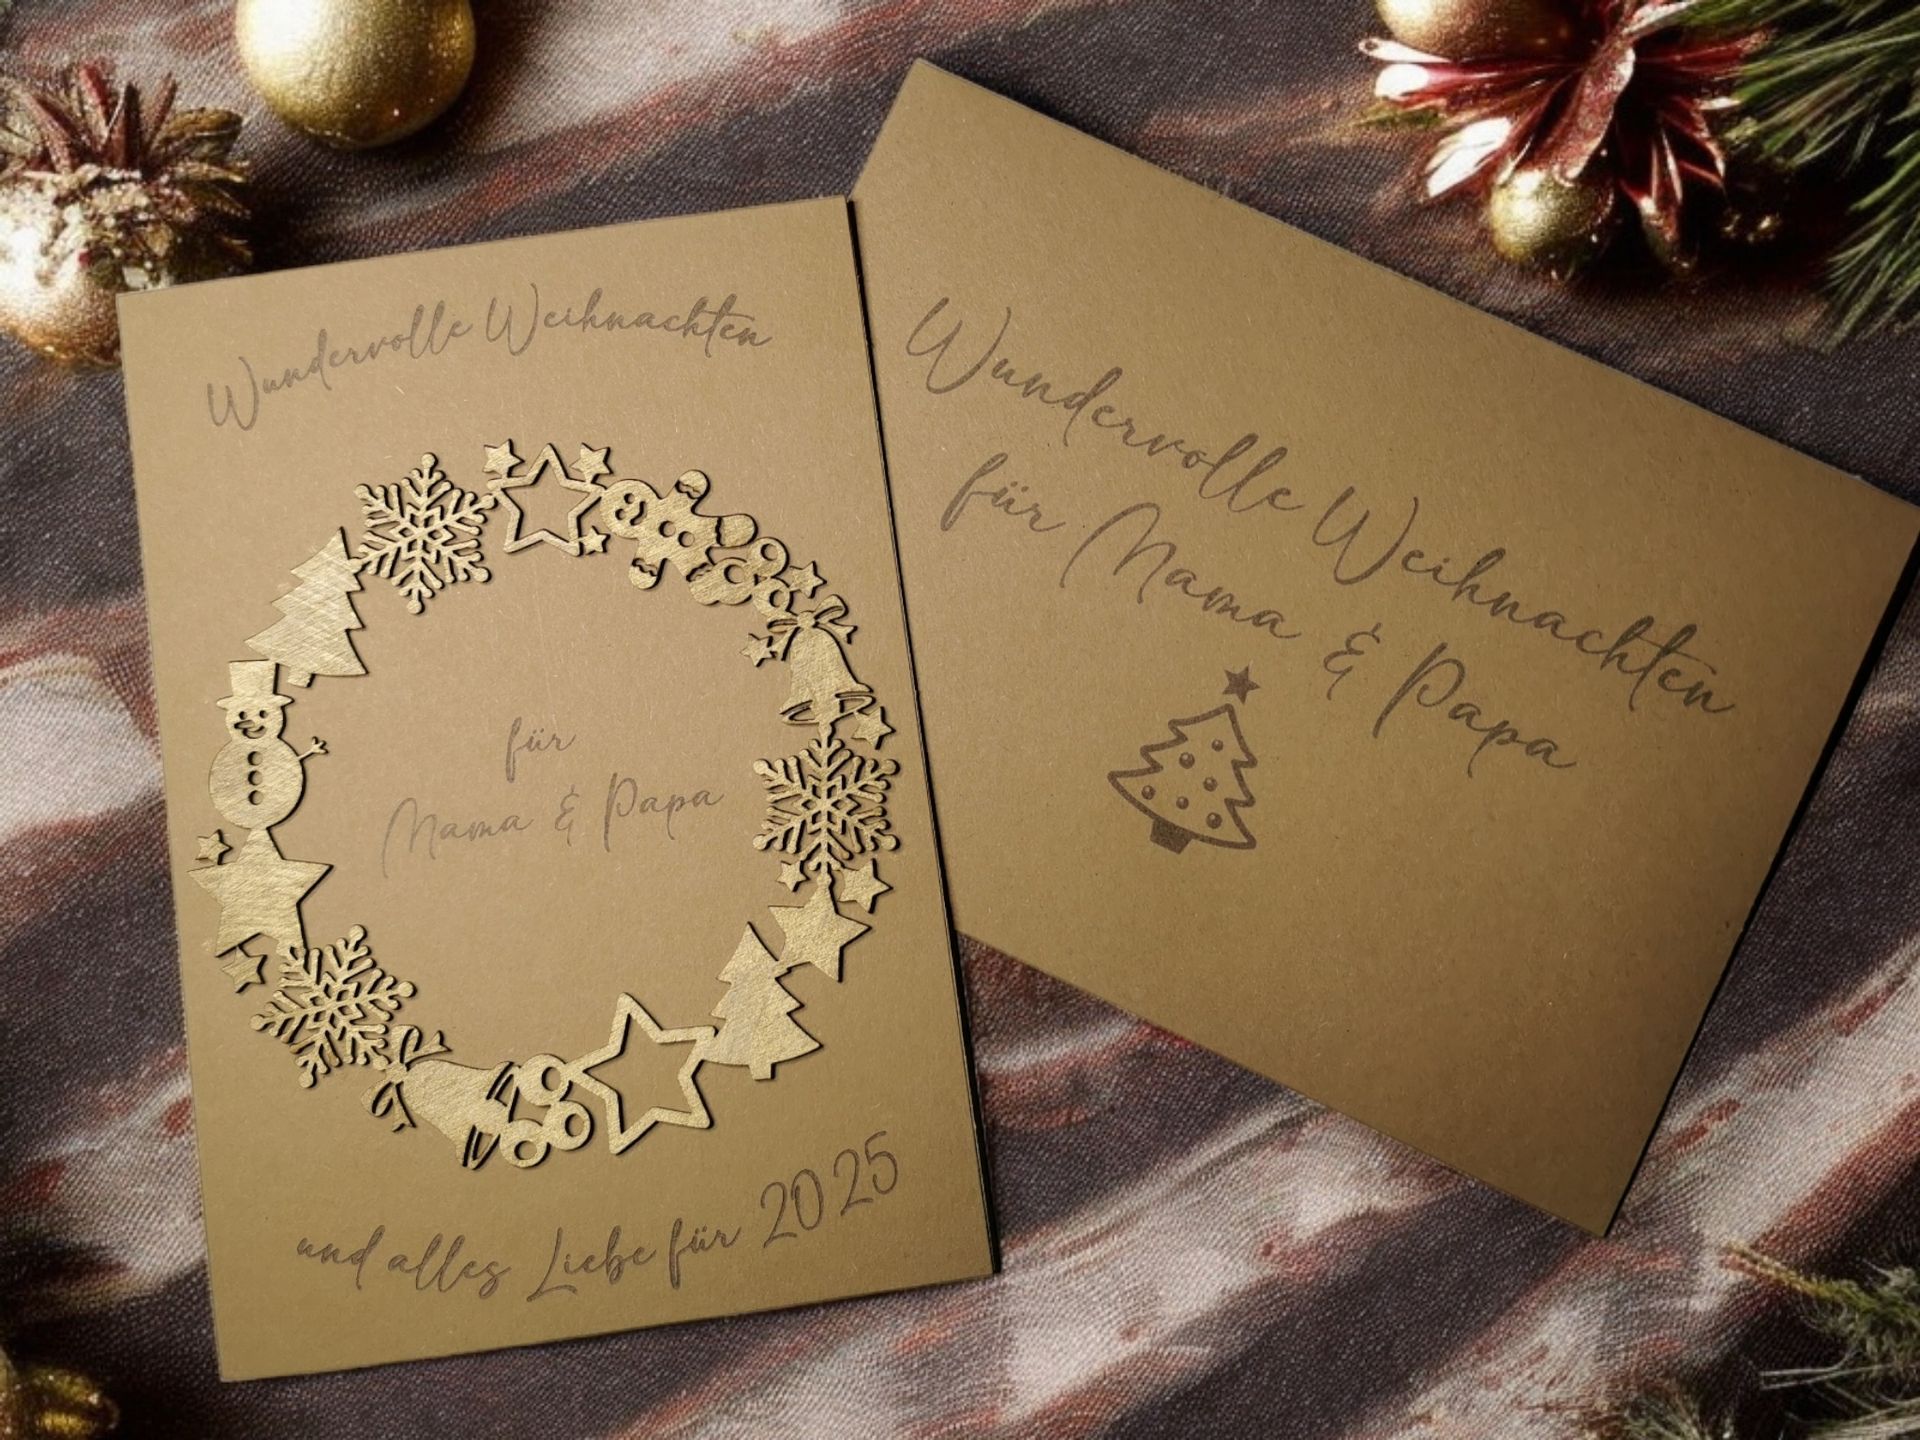 Wundervolle Weihnachten
für
Mama & Papa
und alles Liebe für 2025
Wundervolle Weihnachten
für Mama & Papa